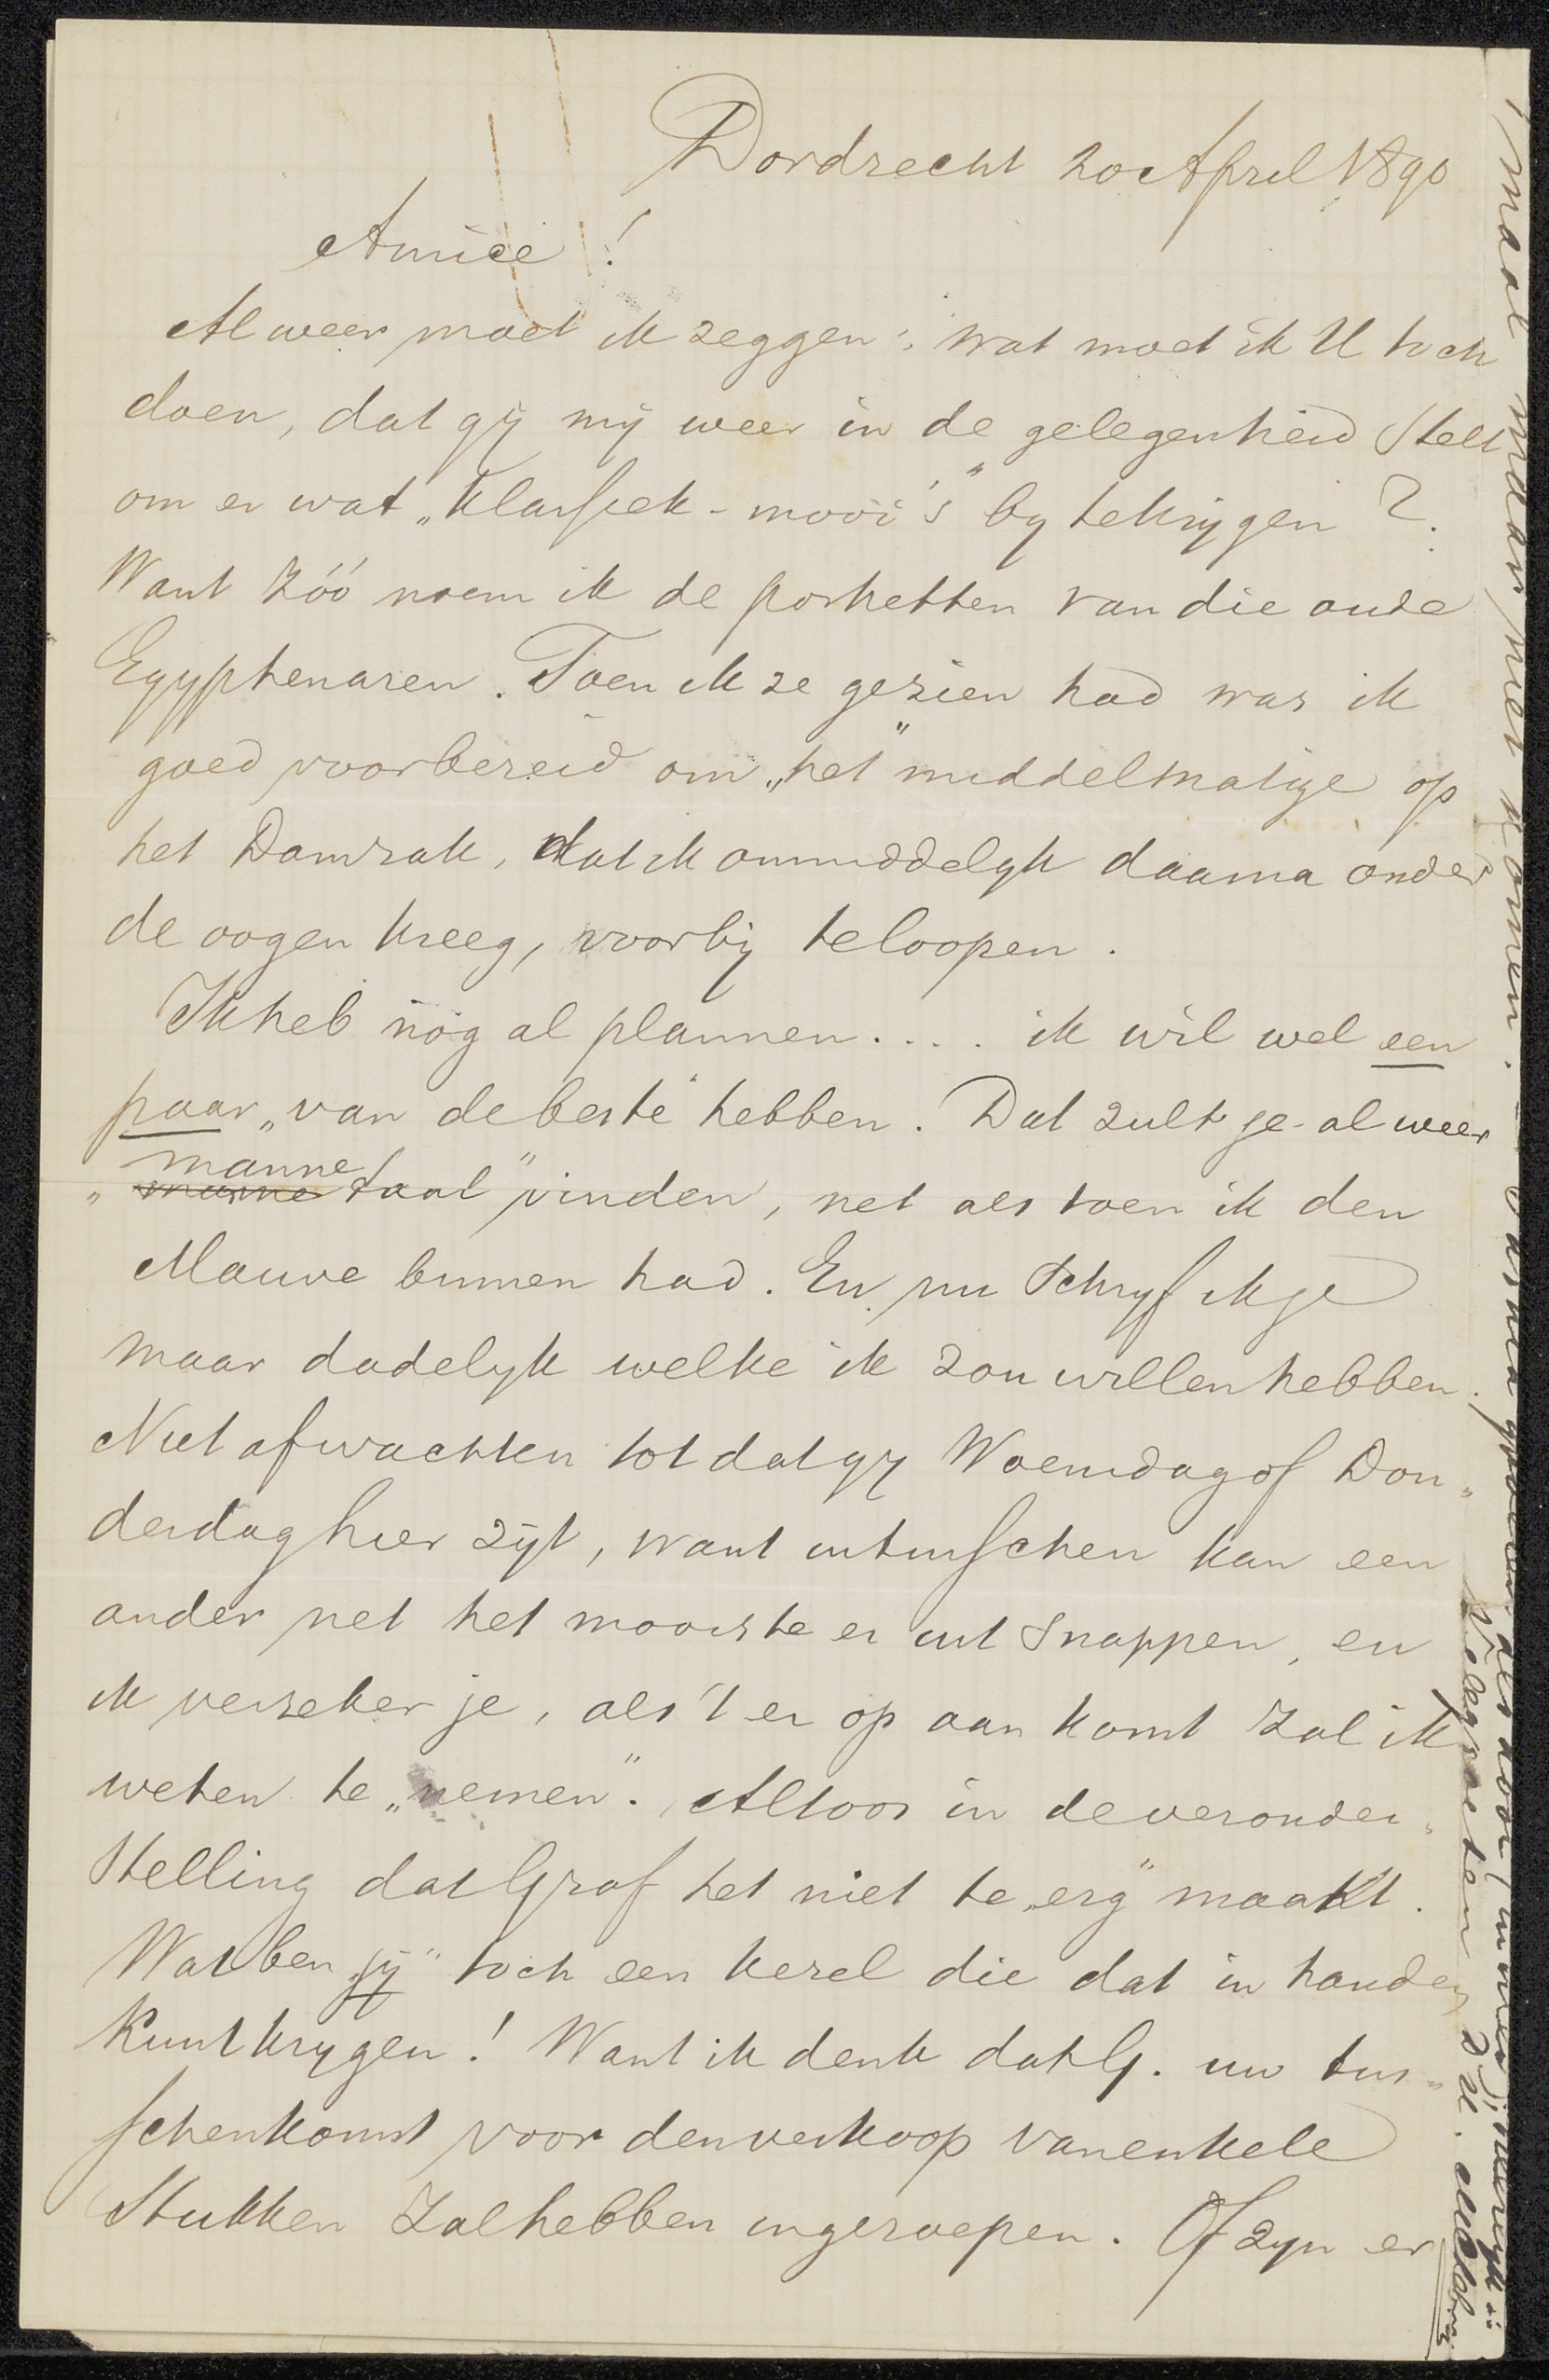 Dordrecht 20 April 1890
Amice!
Al weer moet ik zeggen: wat moet ik U toch
doen, dat gij mij weer in de gelegenheid stelt
om er wat „klassiek-mooi's” by te krygen?
Want zóó noem ik de portretten van die oude
Egyptenaren. Toen ik ze gezien had was ik
goed voorbereid om „het” middelmatige op
het Damrak, dat ik onmiddelyk daarna onder
de oogen kreeg, voorbij te loopen.
Ik heb nog al plannen.... ik wil wel een
paar „van de beste” hebben. Dat zult je al weer
„manne taal” vinden, net als toen ik den
Mauve binnen had. En nu schryf ik je
maar dadelyk welke ik zou willen hebben.
Niet afwachten tot dat gy Woensdag of Don-
derdag hier zijt, want intusschen kan een
ander net het mooiste er uit snappen, en
ik verzeker je, als 't er op aan komt zal ik
weten te „nemen”. Altoos in de veronder-
stelling dat Graf het niet te „erg” maakt.
Wat ben „jij” toch een kerel die dat in handen
kunt krygen! Want ik denk dat G. uw tus-
schenkomst voor den verkoop van enkele
stukken zal hebben ingeroepen. Of zyn er
1 maal maar met namen.
Vele groeten